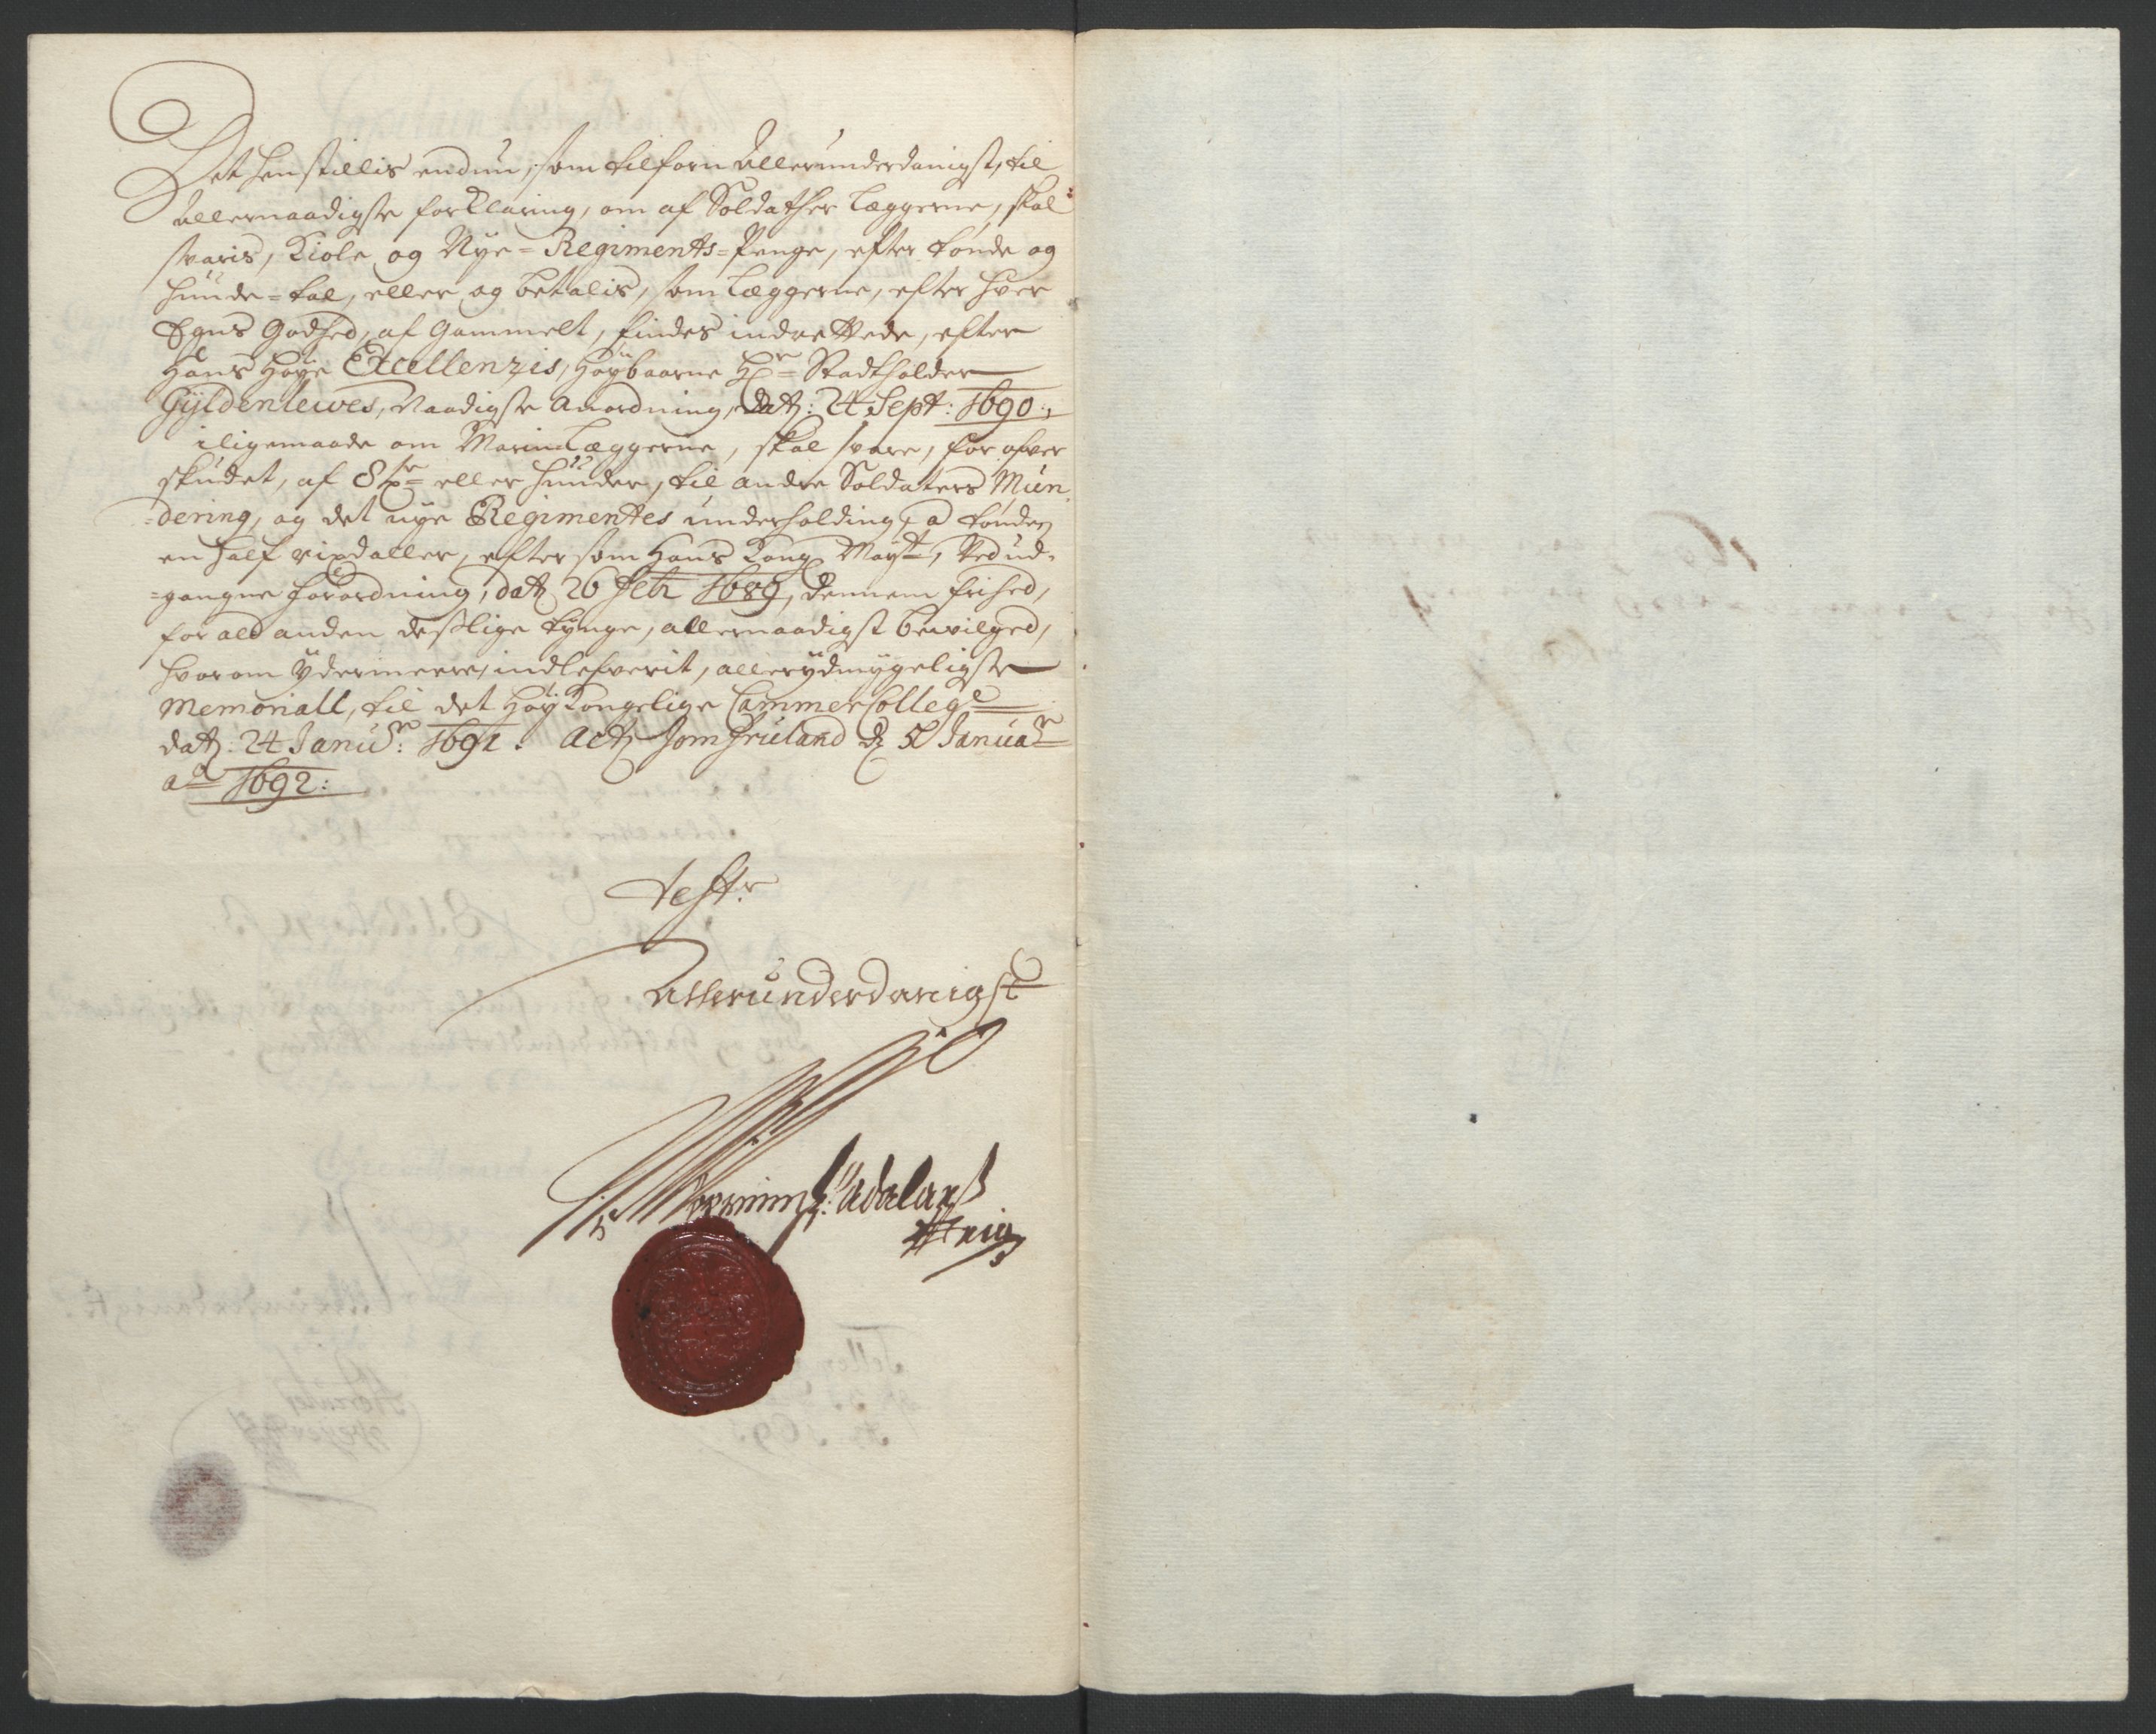 Det henstillis endnu, som tilforn Allerunderdanigst, til
Allernaadigste forklaring, om af Soldather Læggerne, skal
svaris, Kiole og Nye=Regiments=Penge, efter tønde og
hunde=tal, eller og betalis, som Læggerne, efter hver
Egns Godhed, af Gammelt, findes indrettede, efter
Hans Høye Excellenzis, Høybaarne Hr= Stadtholder
Gyldenlewes, Naadigste Anordning, dat: 24 Sept: 1690:,
iligemaade om Marin Læggerne, skal svare, for ofver
skudet, af eller hunder, til andre Soldaters Mün
=dering, og det nye Regimentes underholding, a tønden
en half rixdaller, eftersom Hans Kong May:t, Ved ud=
=gangne forordning, dat 26 Feb 1689, dennem frihed,
for ald anden deslige tynge, allernaadigst bevilged,
hvorom Ydermeere, indlefverit, allerydmygeligste
Memoriall, til det Høy Kongelige Cammer Colleg
dat: 24 Janu: 1691. Act Jomfruland d 5 Janua
ao 1692:
Test:
Allerunderdanigst